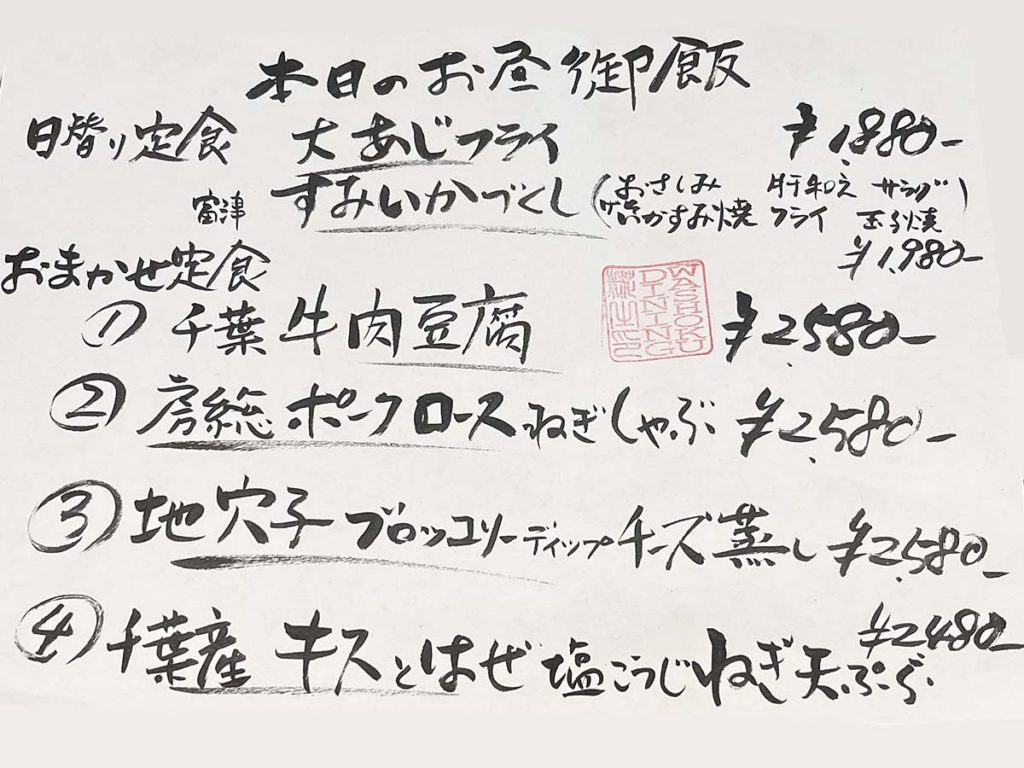 本日のお昼御飯
日替り定食 大あじフライ ¥1,880-
富津 すみいかづくし (おさしみ 肝和え サラダ)
いかすみ焼 フライ 玉子焼
¥1,980-
おまかせ定食
① 千葉 牛肉豆腐 ¥2,580-
WASHOKU DINING
② 房総 ポークロース ねぎしゃぶ ¥2,580-
③ 地穴子 ブロッコリーディップ チーズ蒸し ¥2,580-
④ 千葉産 キスとはぜ 塩こうじ ねぎ天ぷら ¥2480-